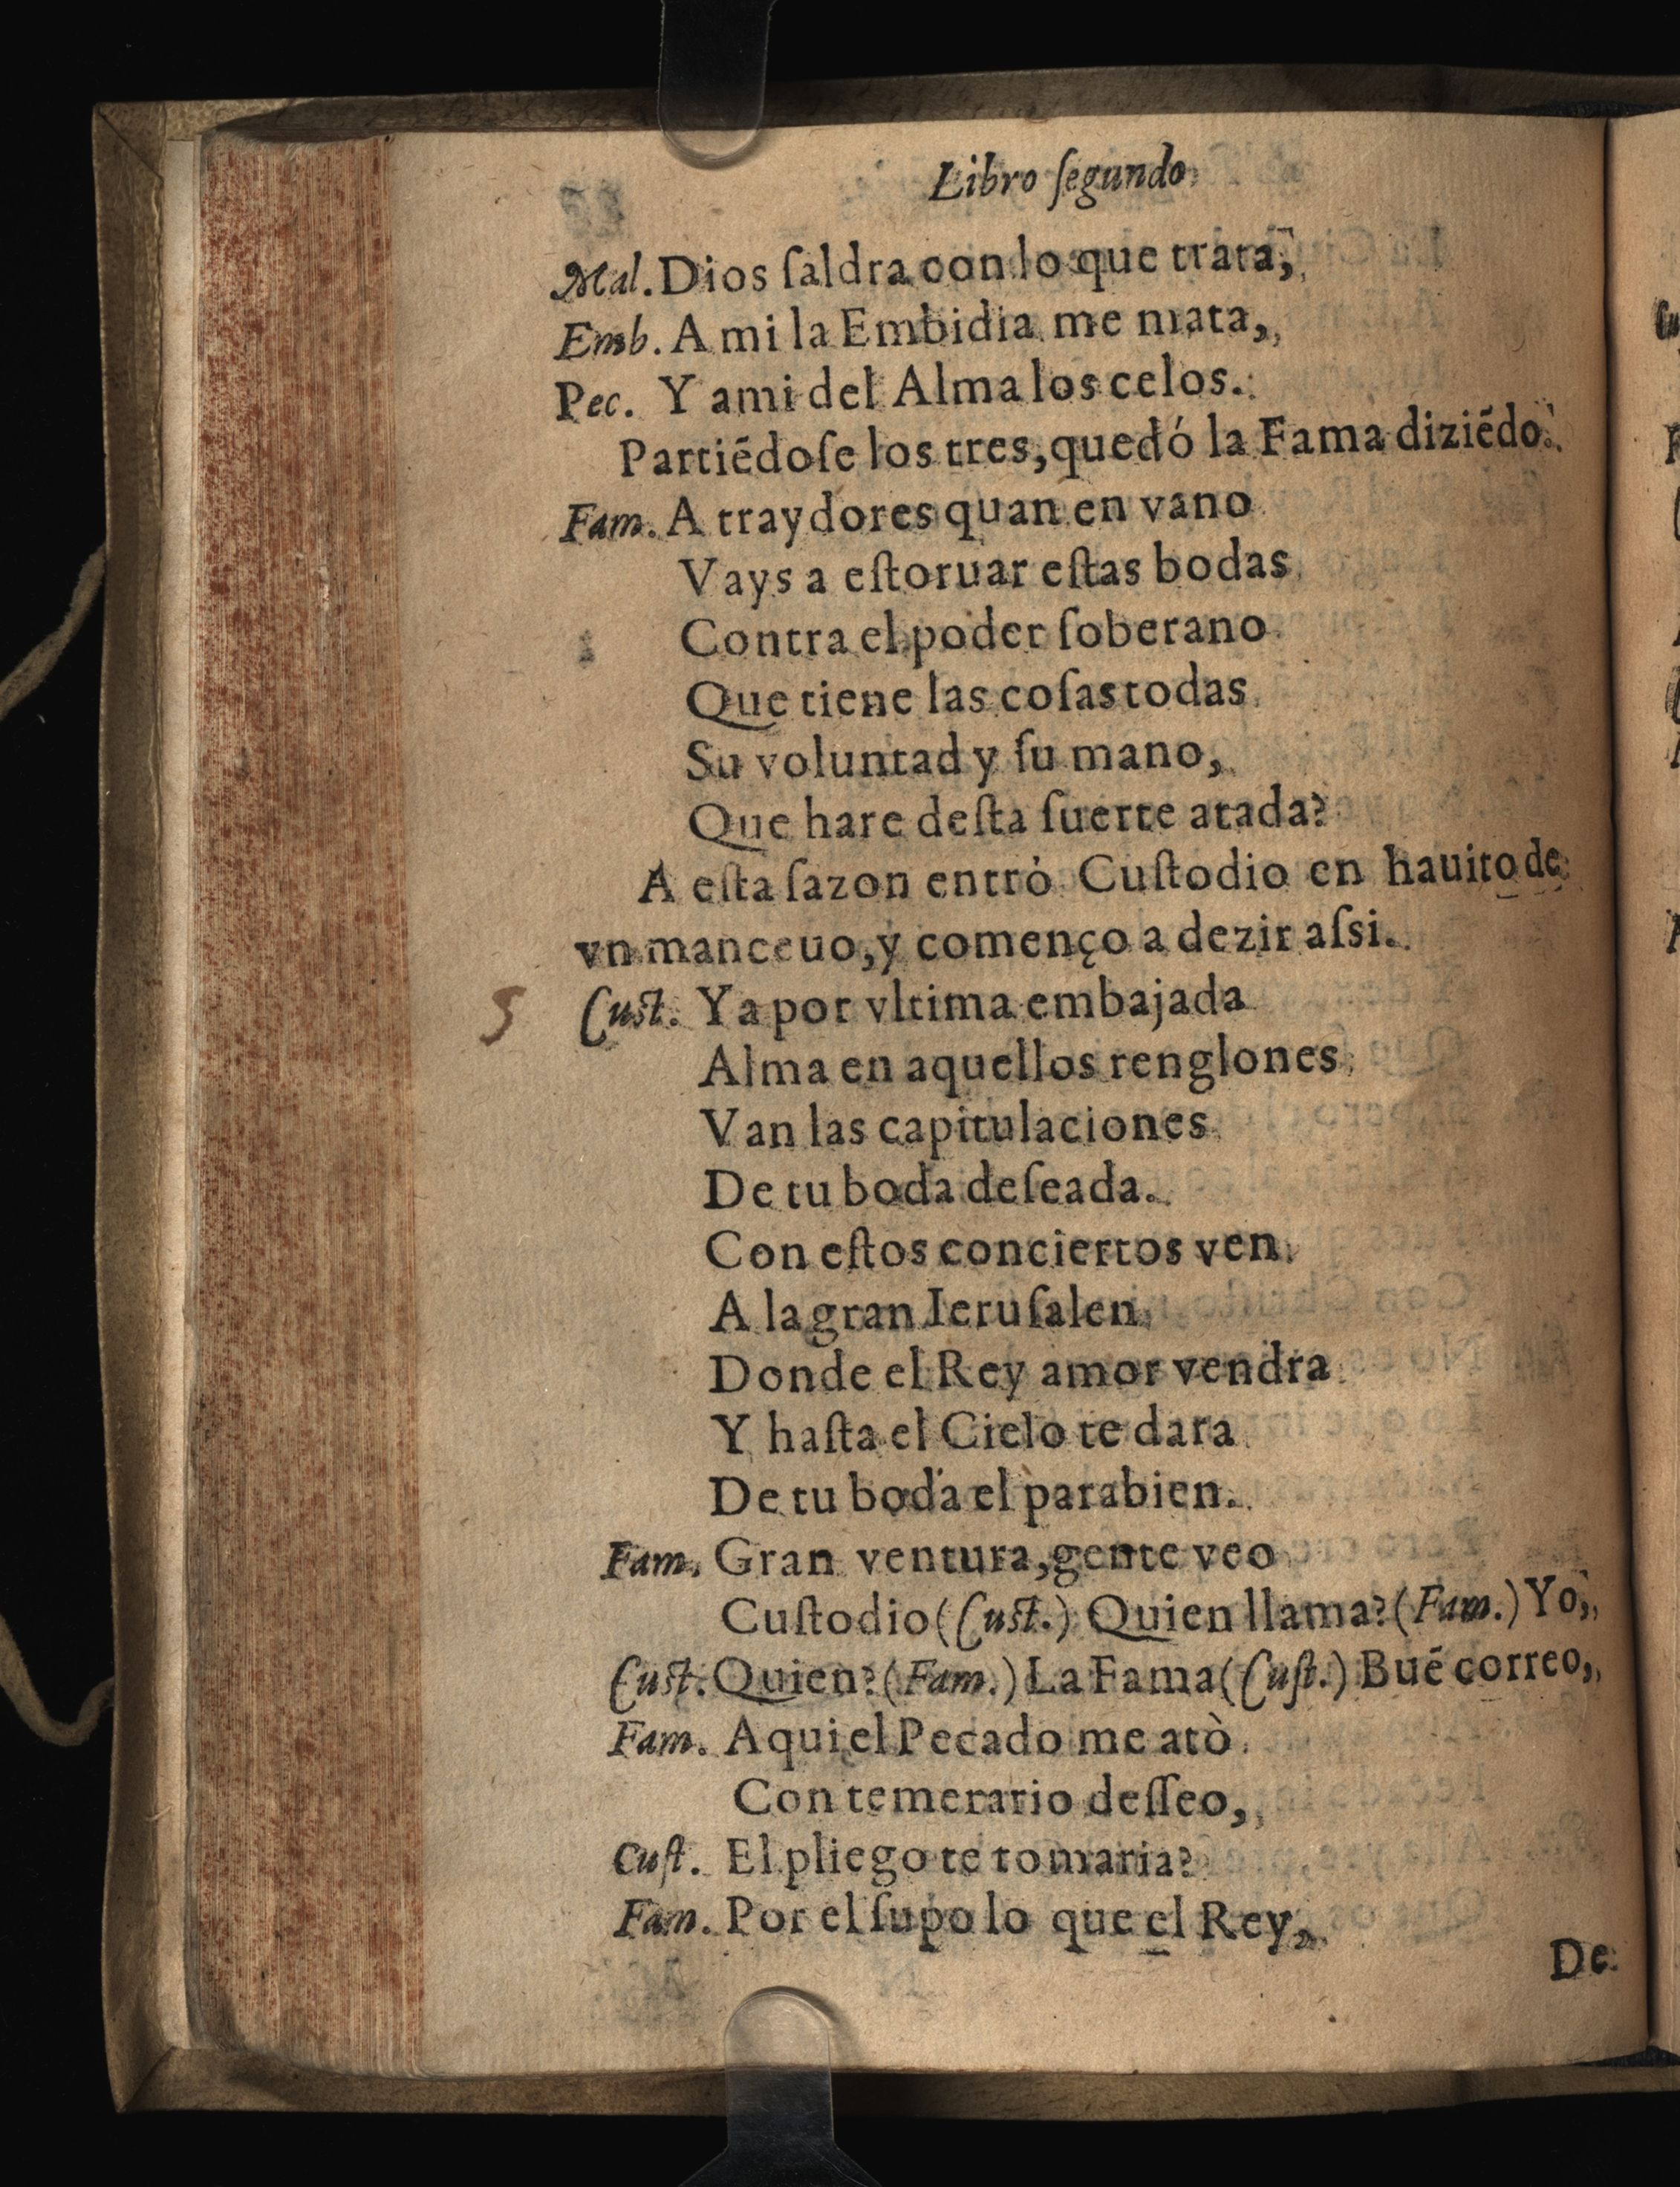 Libro ſegundo
Mal. Dios ſaldra con lo que trata,
Emb. A mi la Embidia me mata,
Pec. Y a mi del Alma los celos.
Partiēdoſe los tres, quedó la Fama diziēdo.
Fam. A traydores quan en vano
Vays a eſtoruar eſtas bodas
Contra el poder ſoberano
Que tiene las coſas todas
Su voluntad y ſu mano,
Que hare deſta ſuerte atada?
A eſta ſazon entrò Cuſtodio en hauito de
vn manceuo, y començo a dezir aſsi.
5 Cuſt. Ya por vltima embajada
Alma en aquellos renglones
Van las capitulaciones
De tu boda deſeada.
Con eſtos conciertos ven
A la gran Ieruſalen
Donde el Rey amor vendra
Y haſta el Cielo te dara
De tu boda el parabien.
Fam. Gran ventura, gente veo
Cuſtodio (Cuſt.) Quien llama? (Fam.) Yo,
Cuſt. Quien? (Fam.) La Fama (Cuſt.) Buē correo,
Fam. Aqui el Pecado me atò
Con temerario deſſeo,
Cuſt. El pliego te tomaria?
Fam. Por el ſupo lo que el Rey,
De